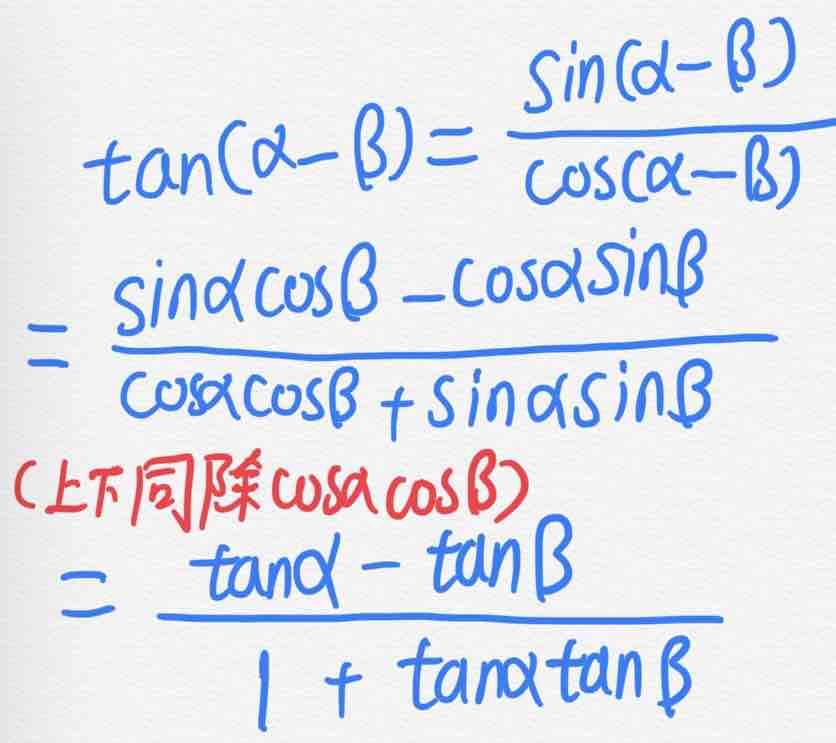 tan(α-β)=\frac{sin(α-β)}{cos(α-β)}
=\frac{sinαcosβ-cosαsinβ}{cosαcosβ+sinαsinβ}
(上下同除cosαcosβ)
=\frac{tanα-tanβ}{1+tanαtanβ}